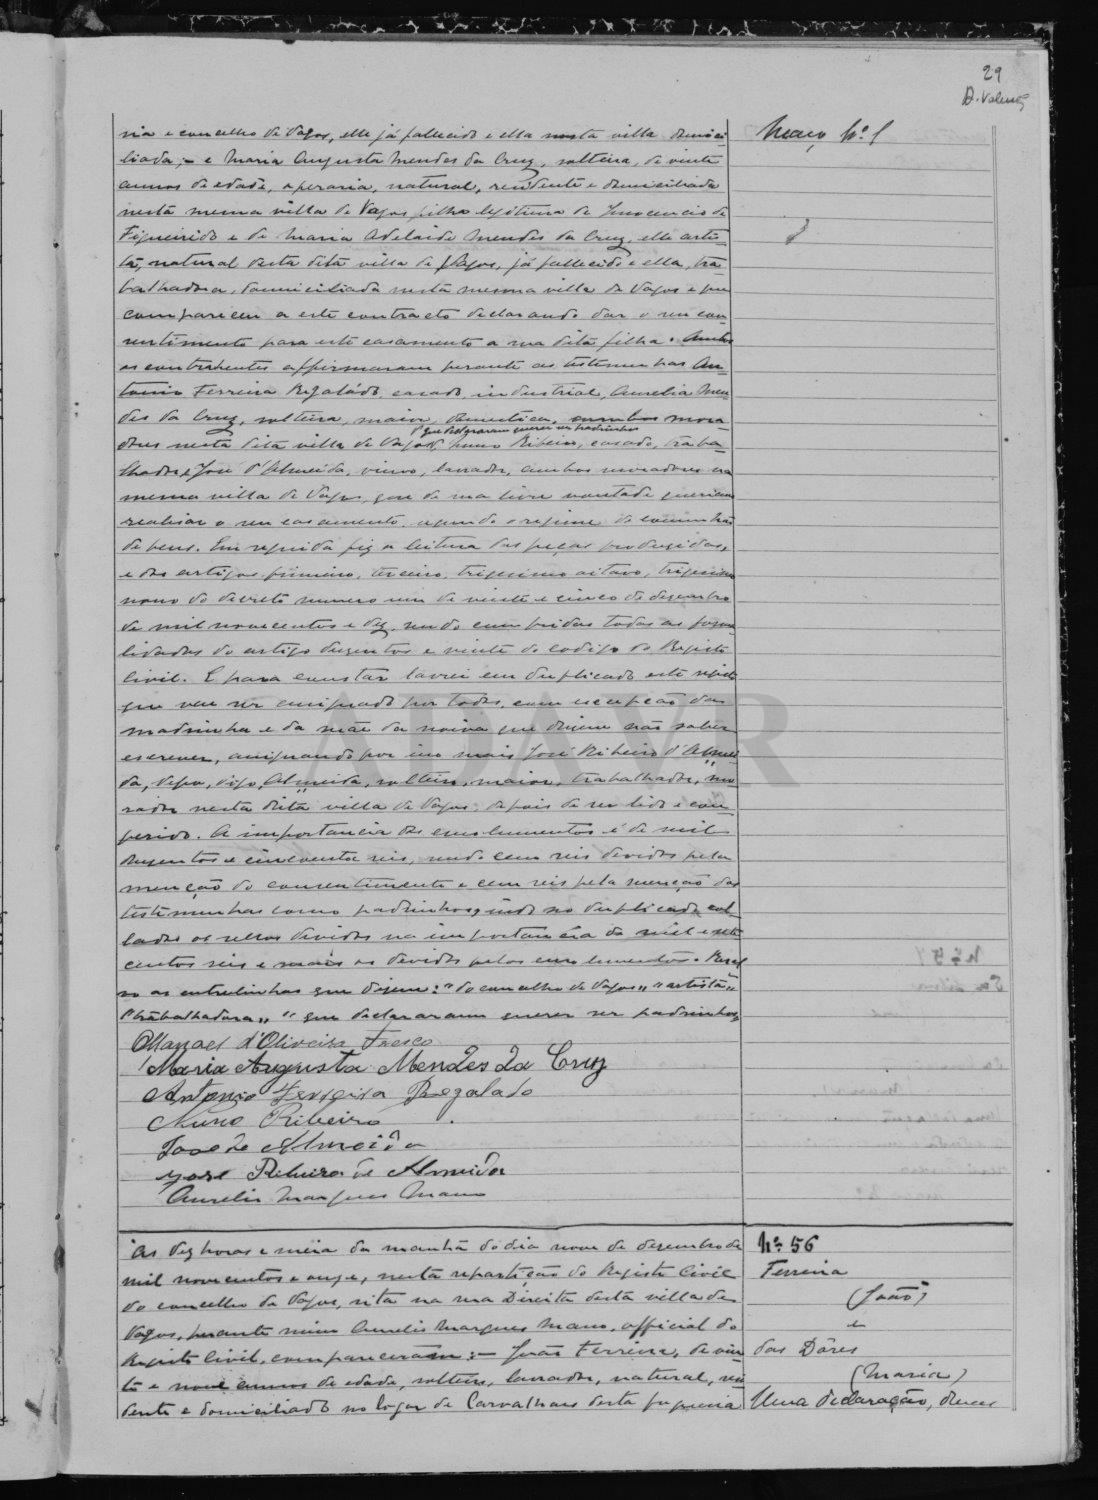 29
D. Valente
Maço Nº 1
ria e concelho de Vagos, elle já fallecido e ella nesta villa domici-
liada; - e Maria Augusta Mendes da Cruz, solteira, de vinte
annos de edade, operaria, natural, residente e domiciliada
nesta mesma villa de Vagos filha legitima de Innocencio de
Figueiredo e de Maria Adelaide Mendes da Cruz, elle artis-
ta, natural desta dita villa de Vagos, já fallecido e ella, tra-
balhadora, domiciliada nesta mesma villa de Vagos e que
compareceu a este contracto declarando dar o seu con-
sentimento para este casamento a sua dita filha. Ambos
os contrahentes affirmaram perante as testemunhas An-
tonio Ferreira Regalado, casado, industrial, Aurelia Men-
des da Cruz, solteira, maior, domestica, ambos mora-
que declararam querer ser padrinhos
dores nesta dita villa de Vagos, Nuno Ribeiro, casado, traba-
lhador, e José d'Almeida, viuvo, lavrador, ambos moradores na
mesma villa de Vagos, que de sua livre vontade queriam
realisar o seu casamento, segundo o regime de communhão
de bens. Em seguida fiz a leitura das peças produzidas,
e dos artigos primeiro, terceiro, trigesimo oitavo, trigesimo
nono do decreto numero um de vinte e cinco de dezembro
de mil novecentos e dez, sendo cumpridas todas as forma-
lidades do artigo duzentos e vinte do codigo do Registo
Civil. E para constar lavrei em duplicado este registo
que vae ser assignado por todos, com excepção da
madrinha e da mãe da noiva que dizem não saber
escrever, assignando por isso mais José Ribeiro d'Almei-
da, digo, Almeida, solteiro, maior, trabalhador, mo-
rador nesta dita villa de Vagos, depois de ser lido e con-
ferido. A importancia dos emolumentos é de mil
duzentos e cincoenta reis, sendo cem reis devidos pela
menção do consentimento e cem reis pela menção das
testemunhas como padrinhos, indo no duplicado col-
lados os sellos devidos na importancia de mil e sete-
centos reis e mais os devidos pelos emolumentos. Resal-
vo as entrelinhas que dizem: "do concelho de Vagos" "artista"
"trabalhadora" "que declararam querer ser padrinhos"
Manoel d'Oliveira Fresco
Maria Augusta Mendes da Cruz
Antonio Ferreira Regalado
Nuno Ribeiro
José de Almeida
José Ribeiro de Almeida
Aurelio Marques Mano
Nº 56
Ferreira
(João)
e
das Dôres
(Maria)
Uma declaração, duas
As dez horas e meia da manhã do dia nove de dezembro de
mil novecentos e onze, nesta repartição do Registo Civil
do concelho de Vagos, sita na rua Direita desta villa de
Vagos, perante mim Aurelio Marques Mano, official do
Registo Civil, compareceram: - João Ferreira, de vin-
te e nove annos de edade, solteiro, lavrador, natural, resi-
dente e domiciliado no logar de Carvalhaes desta freguesia
ADAVR